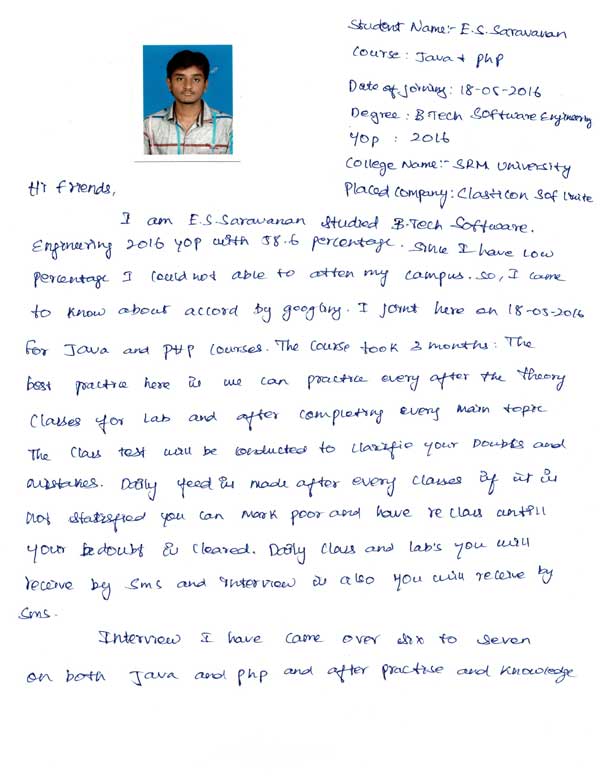 Student Name:- E.S.Saravanan
Course : Java + php
Date of joining : 18-05-2016
Degree : BTech Software Engineering
YOP : 2016
College Name:- SRM University
Placed Company: Clasticon Sof
Hi Friends,
I am E.S.Saravanan studied B.Tech Software.
Engineering 2016 yop with 58.6 percentage. Since I have low
percentage I could not able to atten my campus. so, I came
to know about accord by googling. I joint here on 18-05-2016
for Java and PHP courses. The Course took 3 months: The
best practice here is we can practice every after the theory
Classes for Lab and after completing every main topic
The Class test will be conducted to clarifie your Doubts and
mistakes. Daily feed is made after every classes if it is
not statisfied you can mark poor and have re class untill
your doubt is cleared. Daily class and lab's you will
receive by sms and interview is also you will receive by
sms.
Interview I have came over six to seven
on both Java and php and after practise and knowledge